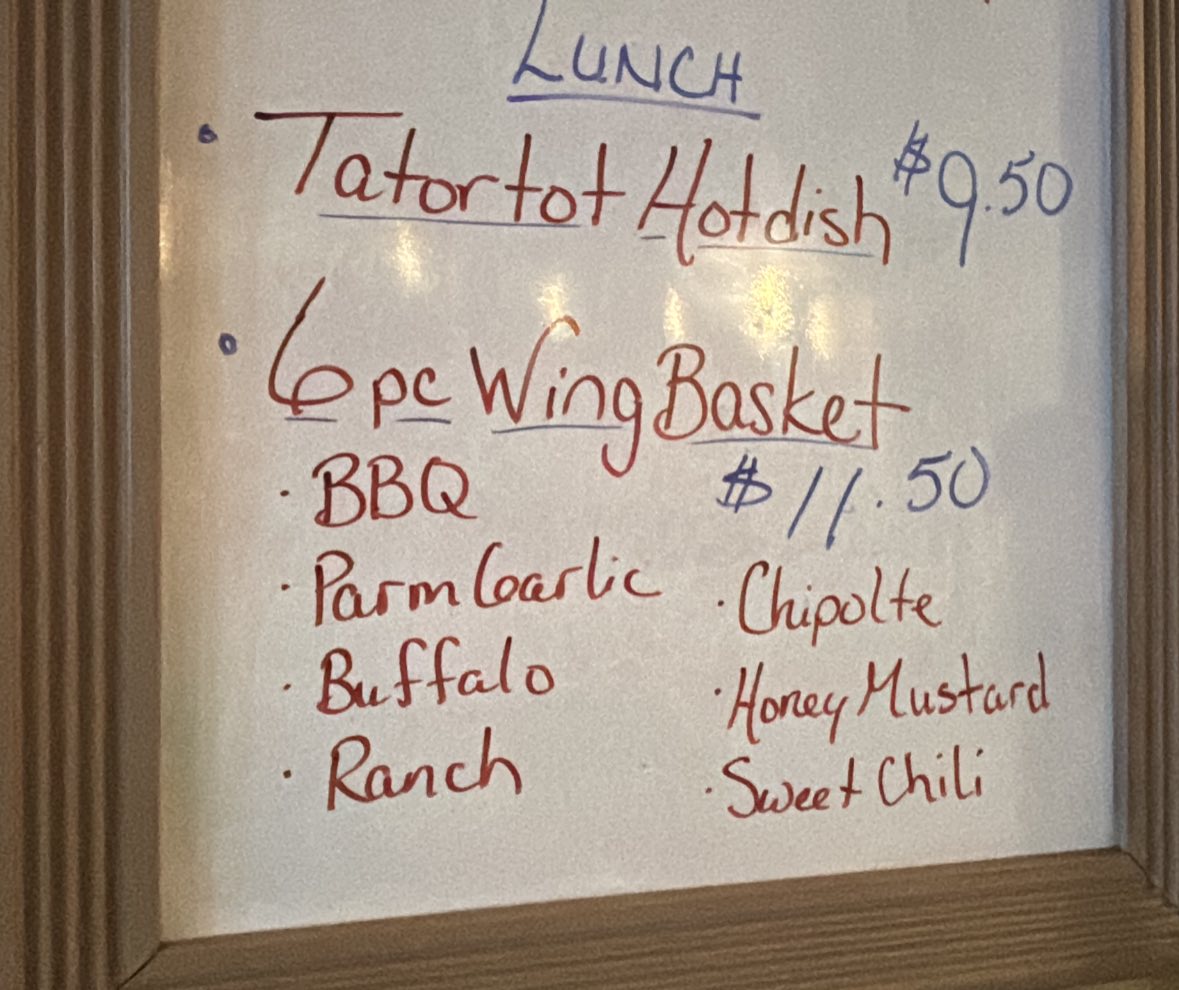 LUNCH
• Tatortot Hotdish $9.50
• 6pc Wing Basket
$11.50
· BBQ
· Parm Garlic
· Buffalo
· Ranch
· Chipolte
· Honey Mustard
· Sweet Chili